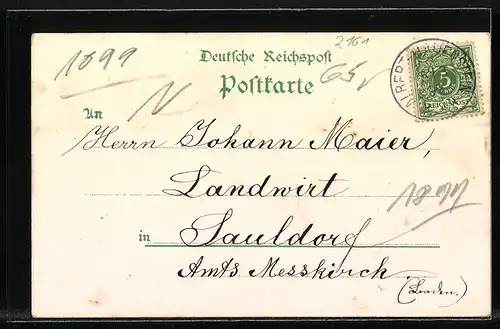 1899
2161
Deutsche Reichspost
65
Postkarte
5
An
Herrn Johann Maier,
Landwirt
1899
in Sauldorf
Amts Messkirch
(Baden.)